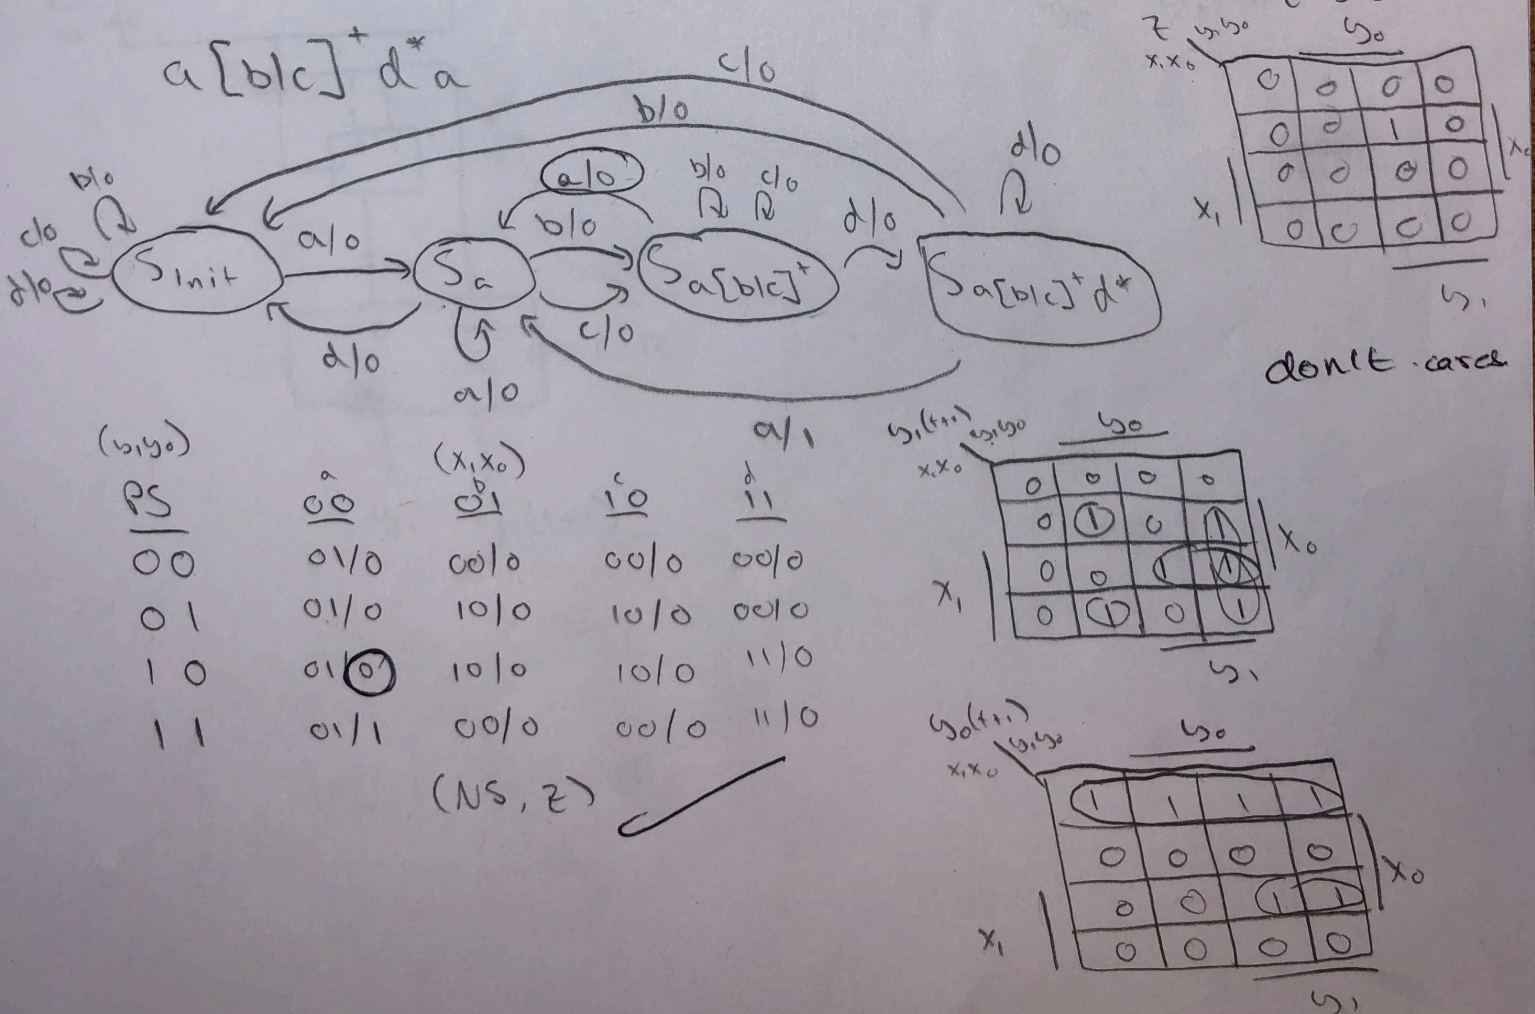 a[b|c]⁺d*a
c/0
b/0
a/0
b/0 c/0
d/0
b/0
c/0
d/0
S init
a/0
S a
b/0
c/0
S a[b|c]⁺
d/0
S a[b|c]⁺d*
d/0
a/0
a/1
(y₁y₀) (x₁x₀)
a b c d
PS 00 01 10 11
00 01/0 00/0 00/0 00/0
01 01/0 10/0 10/0 00/0
10 01/0 10/0 10/0 11/0
11 01/1 00/0 00/0 11/0
(NS, Z)
Z y₁y₀ y₀
x₁x₀
0 0 0 0
0 0 1 0 x₀
0 0 0 0
x₁
0 0 0 0
y₁
don't cares
y₁(t+1) y₁y₀ y₀
x₁x₀
0 0 0 0
0 1 0 1 x₀
0 0 1 1
x₁
0 1 0 1
y₁
y₀(t+1) y₁y₀ y₀
x₁x₀
1 1 1 1
0 0 0 0 x₀
0 0 1 1
x₁
0 0 0 0
y₁